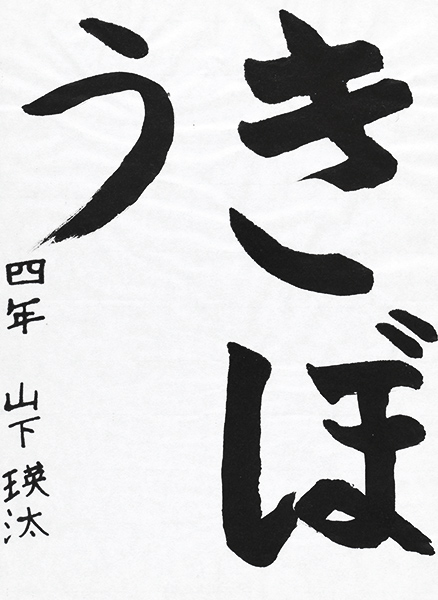 きぼ
う
四年 山下瑛汰